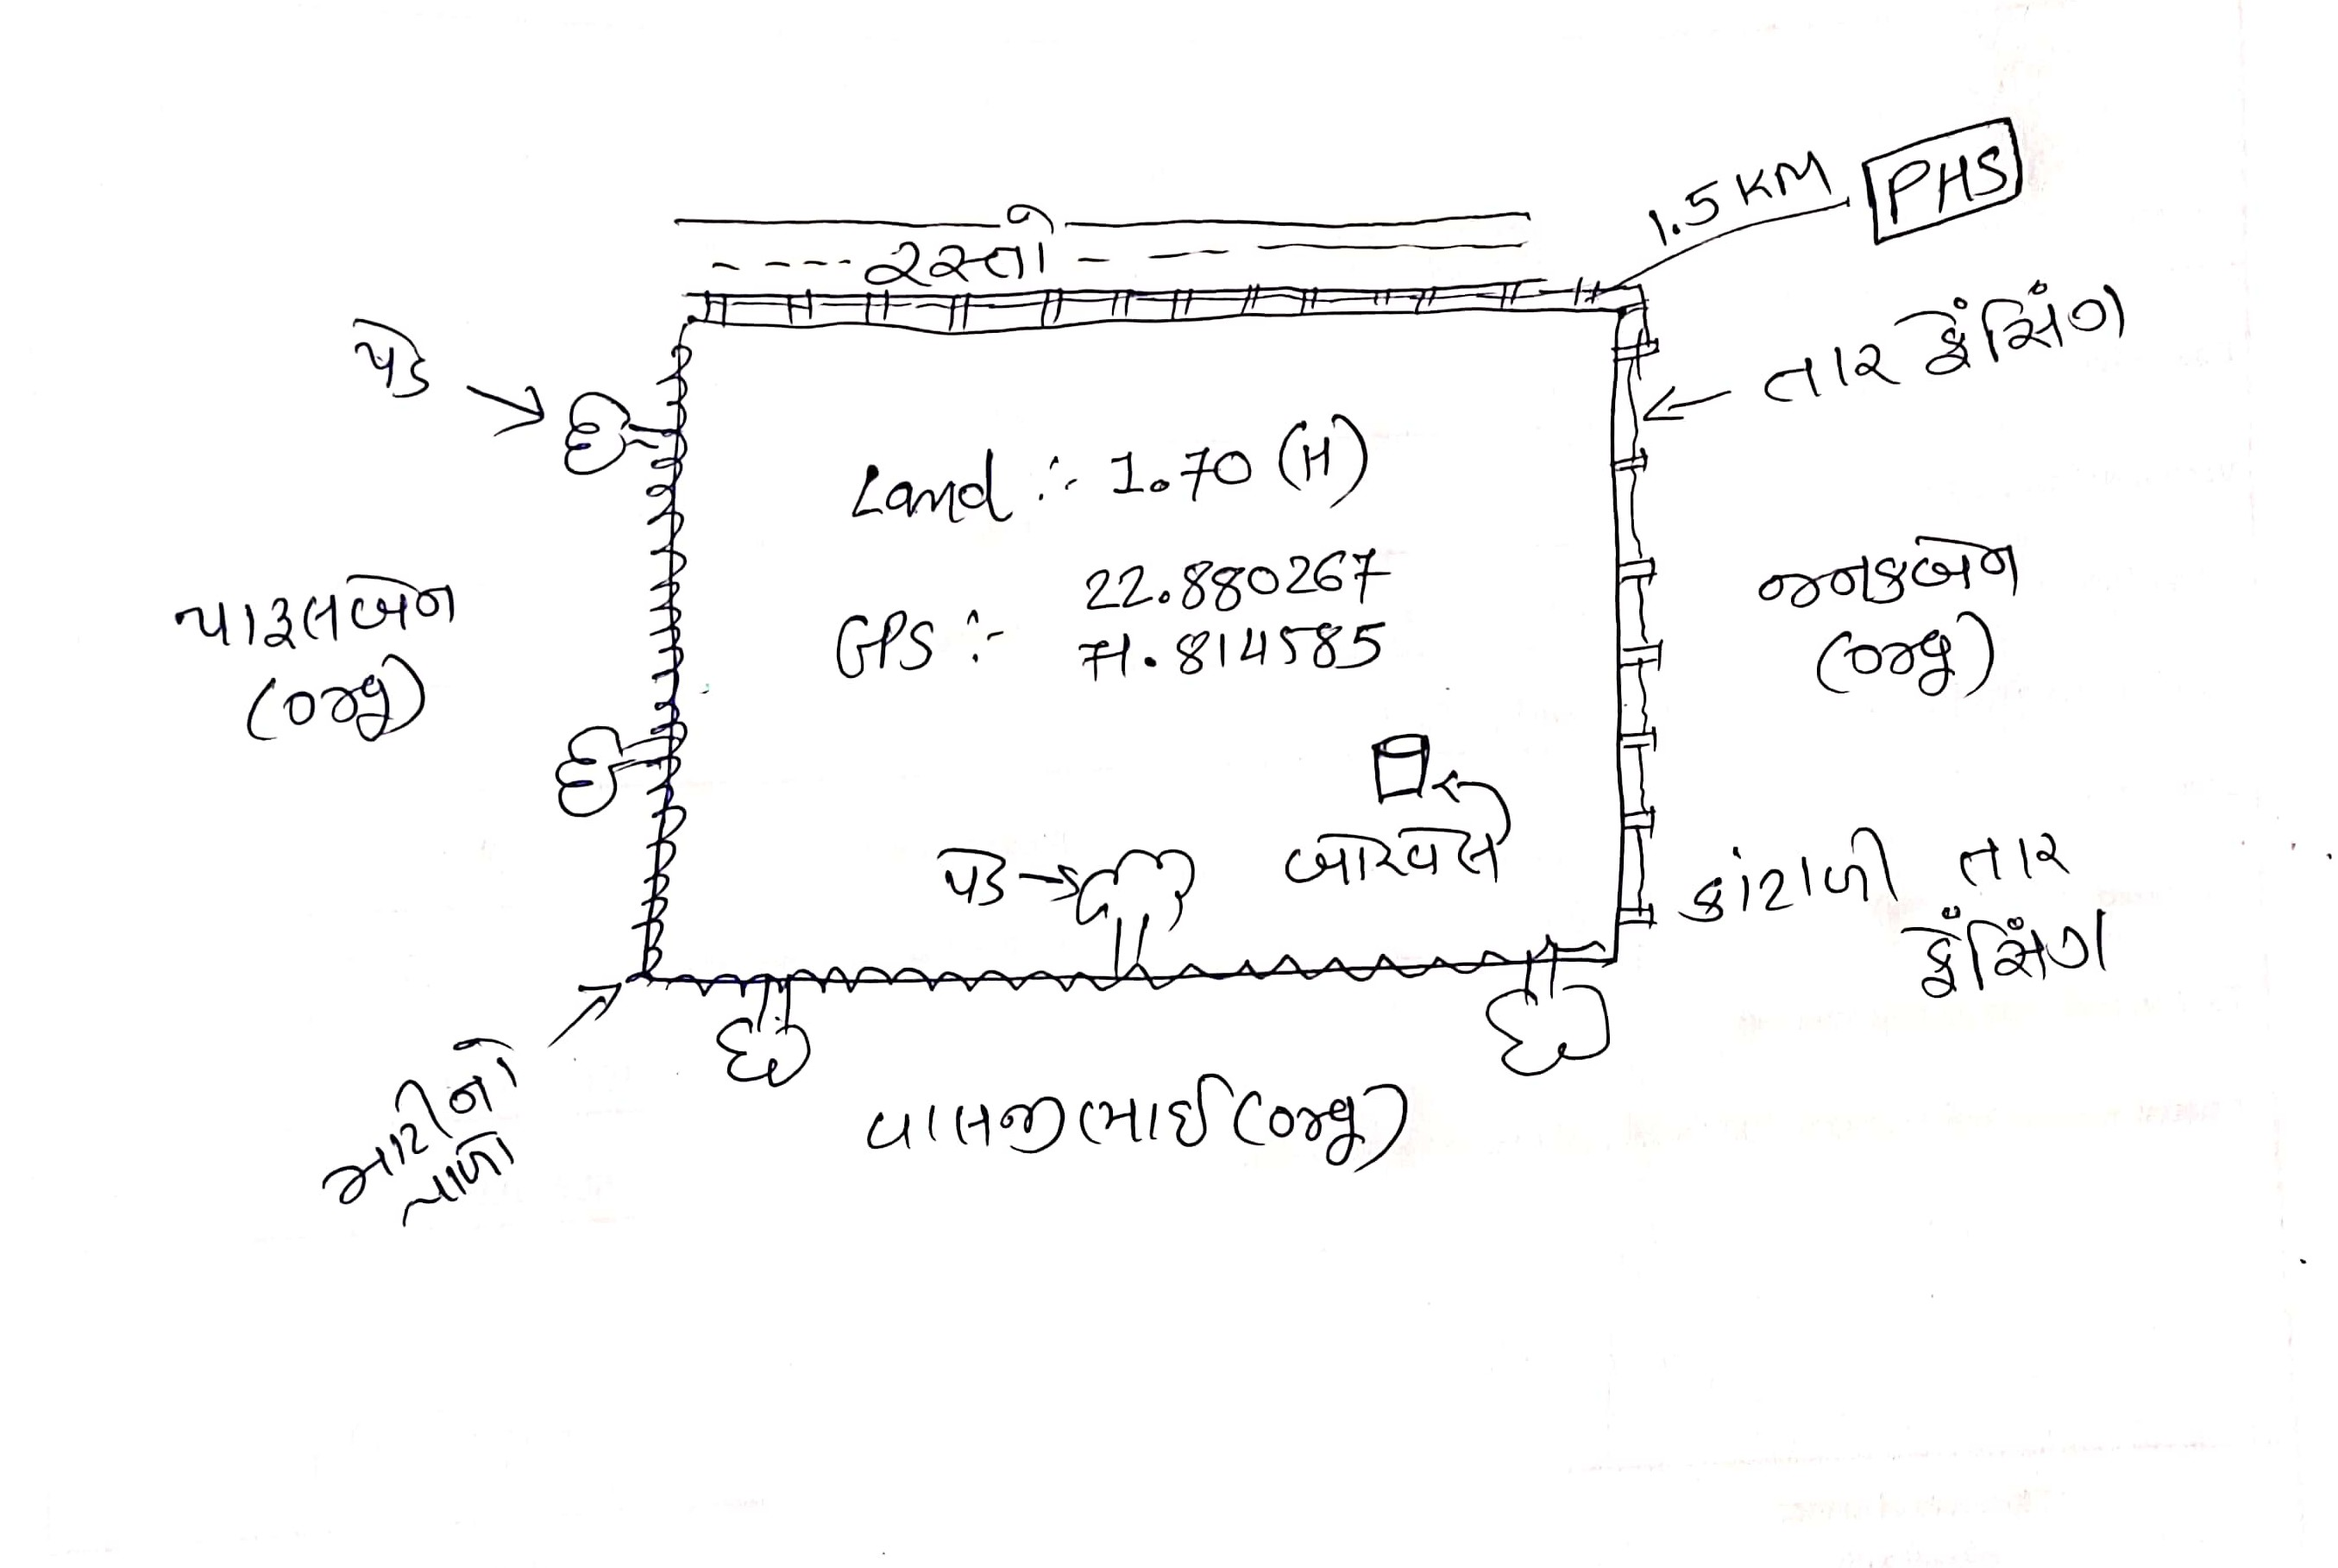 1.5 KM
PHS
રસ્તો
પેડ
તાર ફેંસિંગ
Land :- 1.70 (H)
22.880267
GPS :- 71.814585
ચારૂલબેન
(org)
જનકબેન
(org)
બોરવેલ
પેડ
કાંટાળી તાર
ફેંસિંગ
માટીનો
પાળો
વાલજીભાઈ (org)